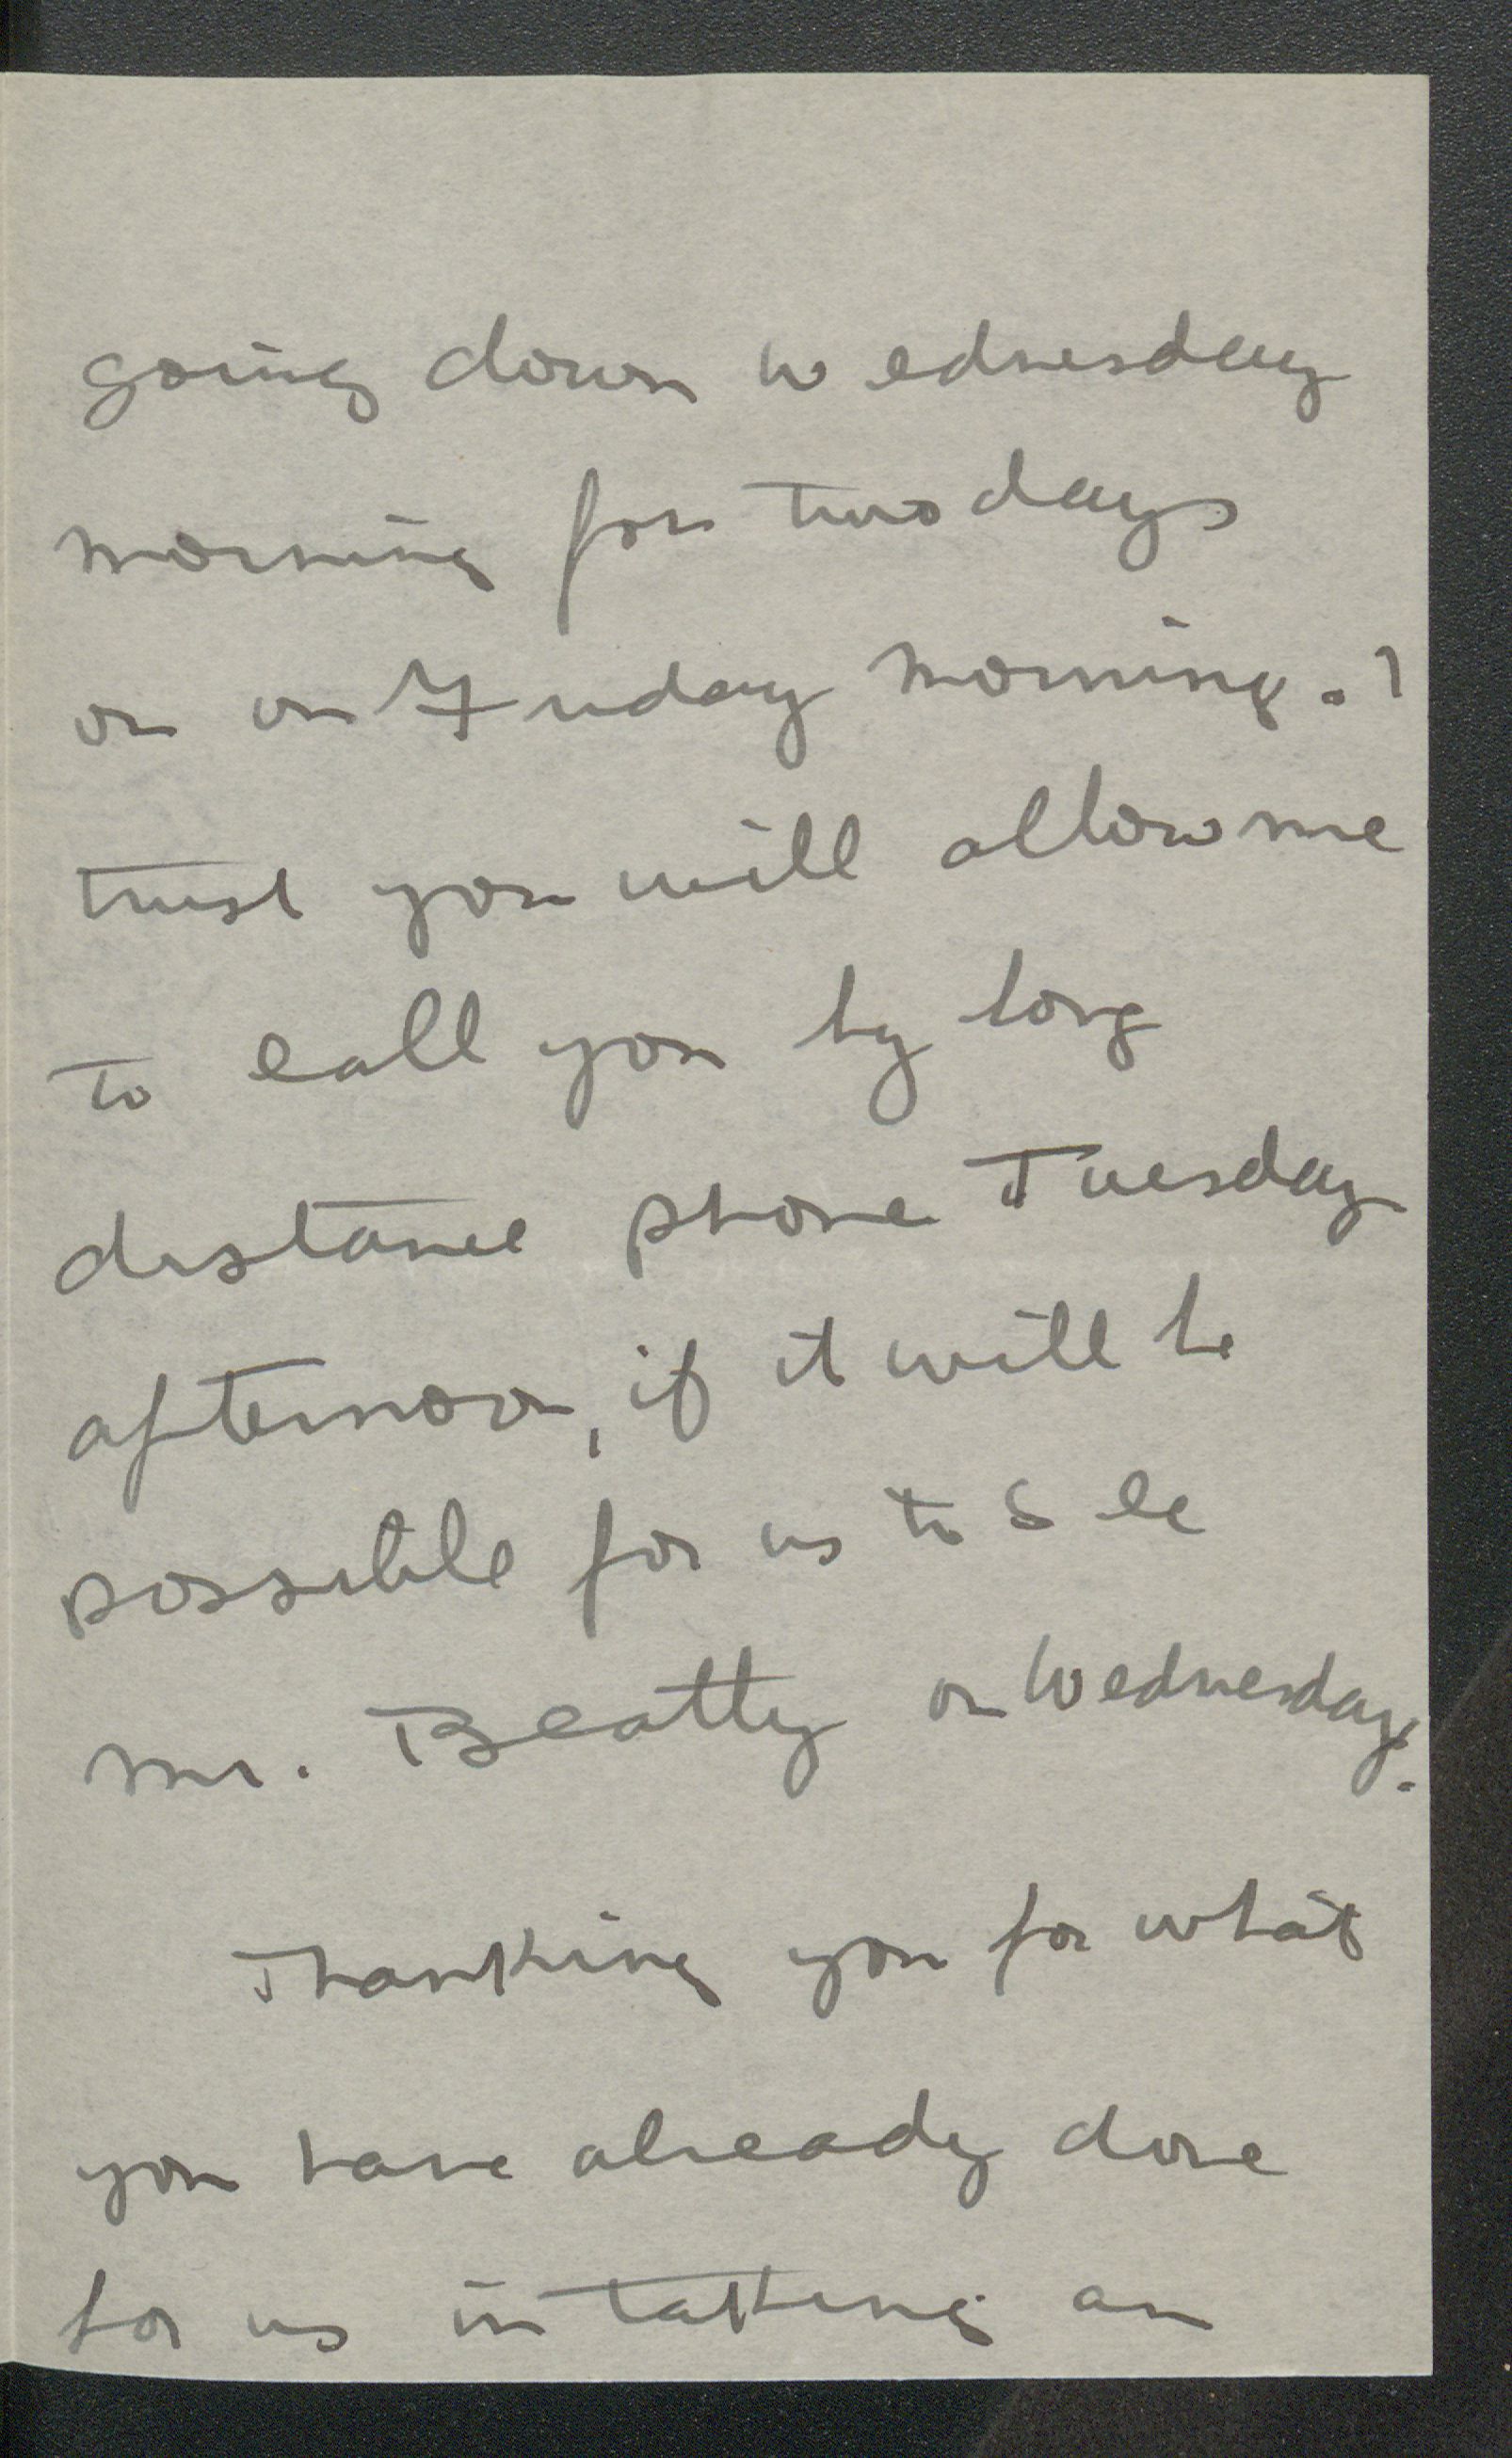 going down Wednesday
morning for two days
or on Friday morning. I
trust you will allow me
to call you by long
distance phone Tuesday
afternoon, if it will be
possible for us to see
Mr. Beatty on Wednesday.
Thanking you for what
you have already done
for us in taking an